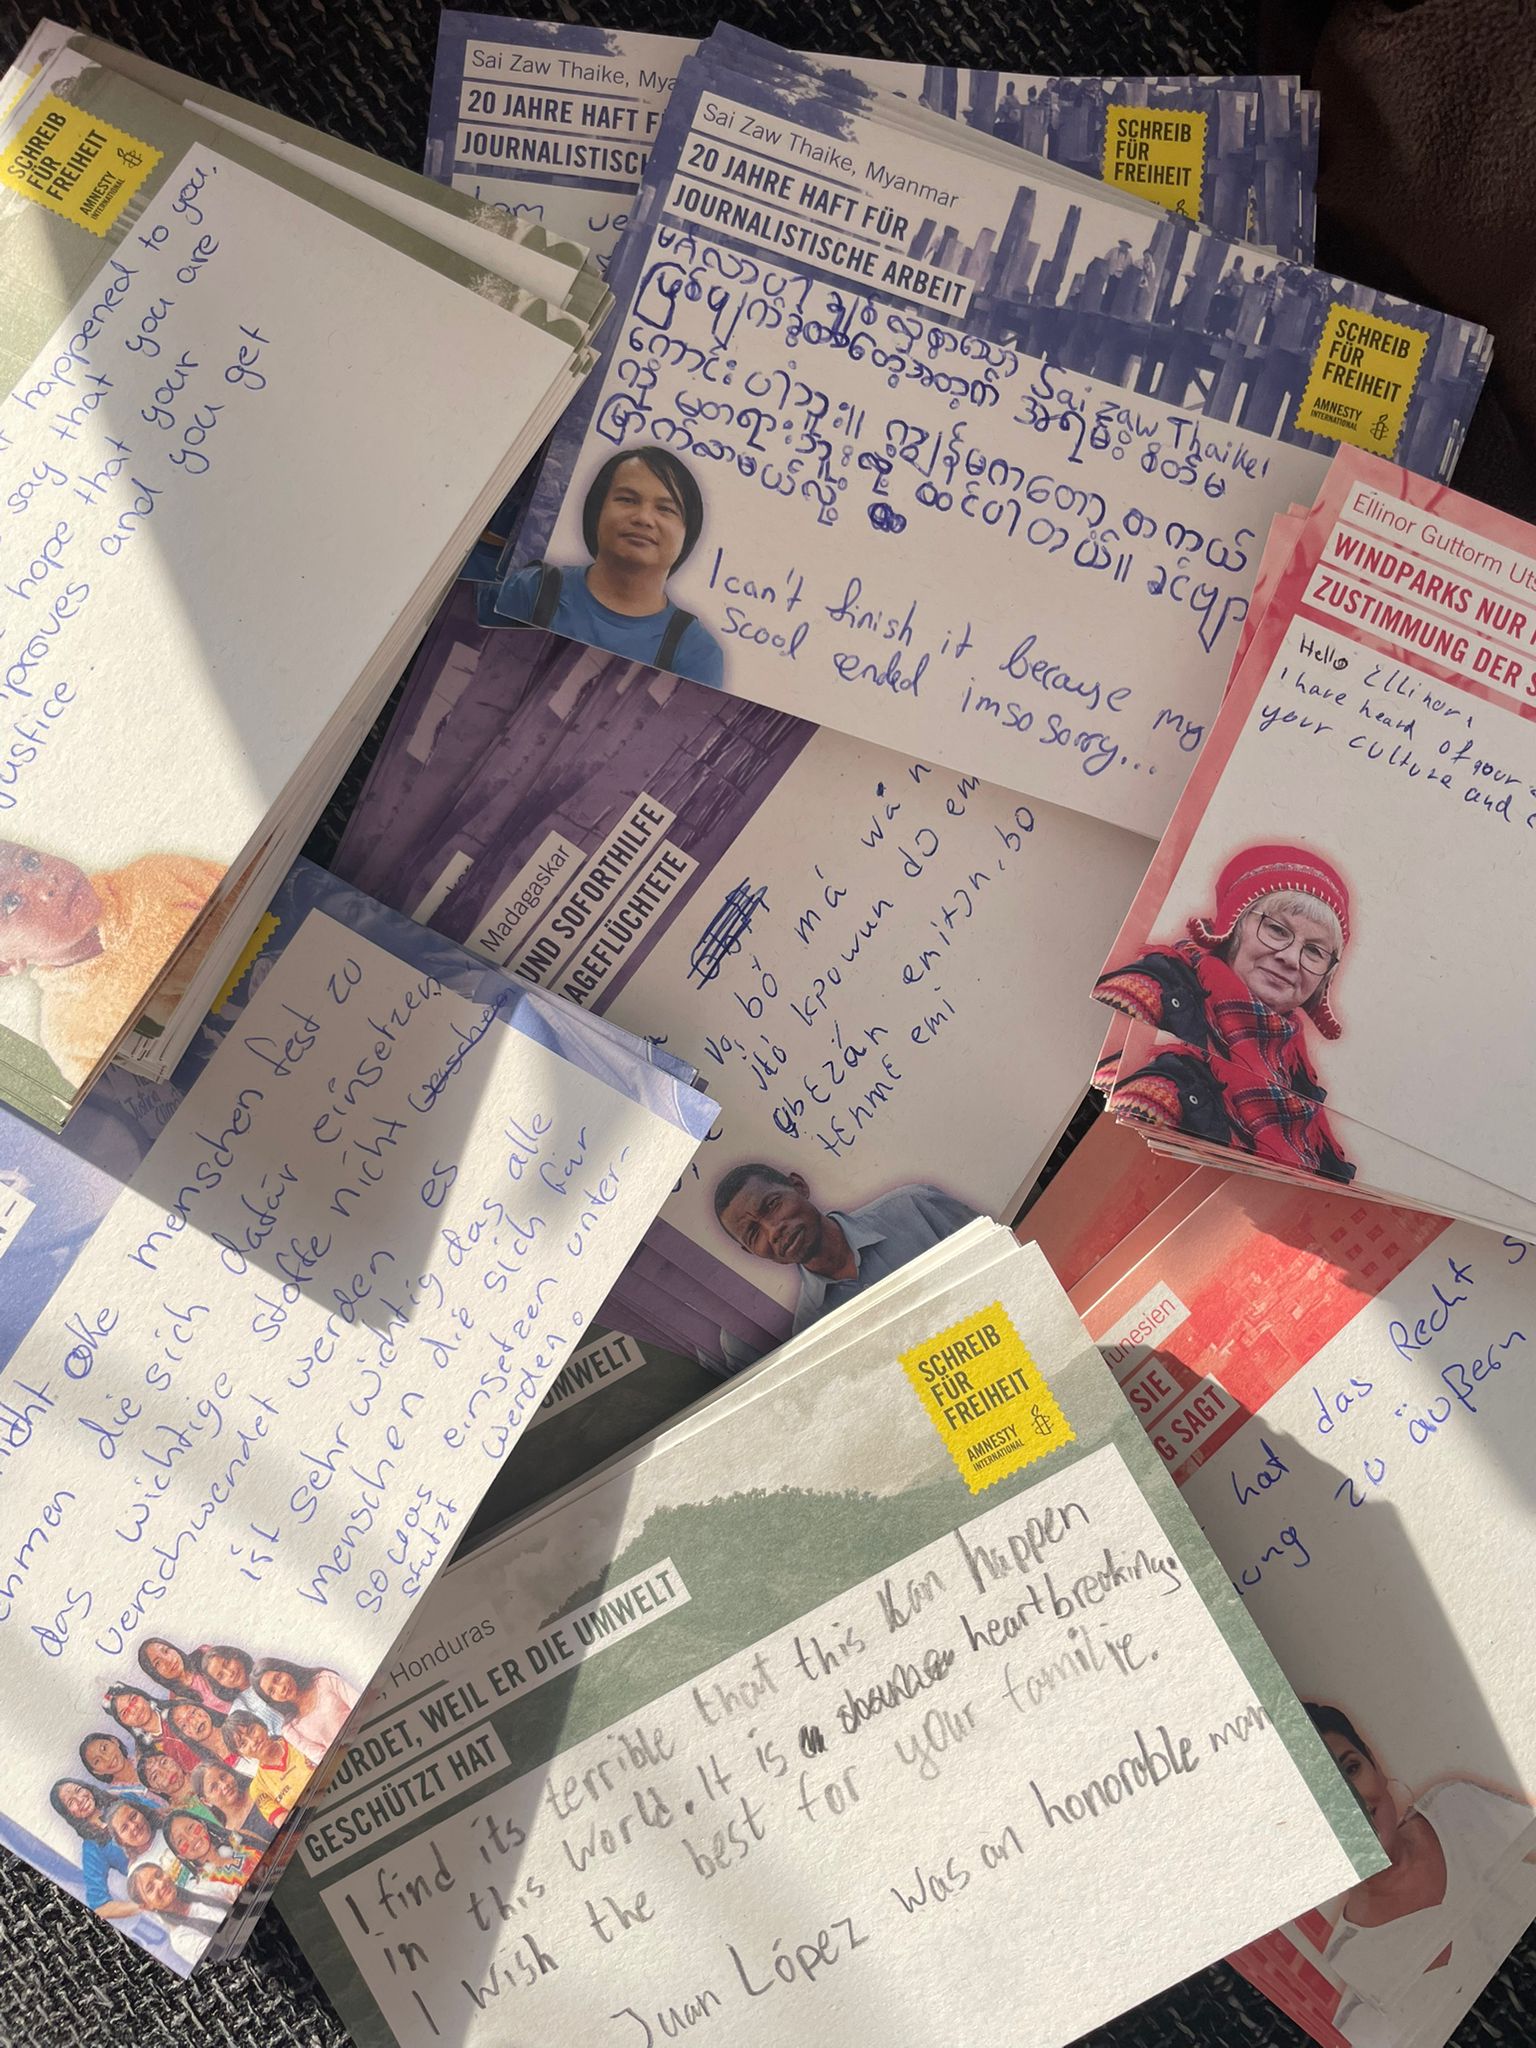 SCHREIB
FÜR
FREIHEIT
AMNESTY
INTERNATIONAL
happened to you.
say that
hope that you are
proves and your
justice
you get
Sai Zaw Thaike, Mya
20 JAHRE HAFT F
JOURNALISTISC
I am ve
SCHREIB
FÜR
FREIHEIT
Sai Zaw Thaike, Myanmar
20 JAHRE HAFT FÜR
JOURNALISTISCHE ARBEIT
SCHREIB
FÜR
FREIHEIT
AMNESTY
INTERNATIONAL
မင်္ဂလာပါ ချစ်လှစွာသော Sai zaw Thaike၊
ဖြစ်ပျက်ခဲ့တာတွေအတွက် အရမ်း စိတ်မ
ကောင်းပါဘူး။ ကျွန်မကတော့ တကယ်
ကို မတရားဘူးလို့ ထင်ပါတယ်။ ခင်ဗျာ
I can't finish it because my
Scool ended imso sorry...
Ellinor Guttorm Uts
WINDPARKS NUR
ZUSTIMMUNG DER S
Hello Ellinor,
I have heard of your
your culture and
Madagaskar
UND SOFORTHILFE
AGEFLÜCHTETE
bó má wà n
itó kpowun do em
gbɛzán emitɔn, bo
tɛnmɛ emi
menschen fest zu
ehmen die sich dafür einsetzen
das wichtige stoffe nicht
verschwendet werden es
ist sehr wichtig das alle
menschen die sich für
sowas einsetzen unter-
stützt werden.
UMWELT
unesien
SIE
G SAGT
hat das Recht s
ung zu äußern
SCHREIB
FÜR
FREIHEIT
AMNESTY
INTERNATIONAL
, Honduras
MORDET, WEIL ER DIE UMWELT
GESCHÜTZT HAT
I find its terrible that this kan happen
in this world. It is heartbreaking.
I wish the best for your familie.
Juan López was an honorable man